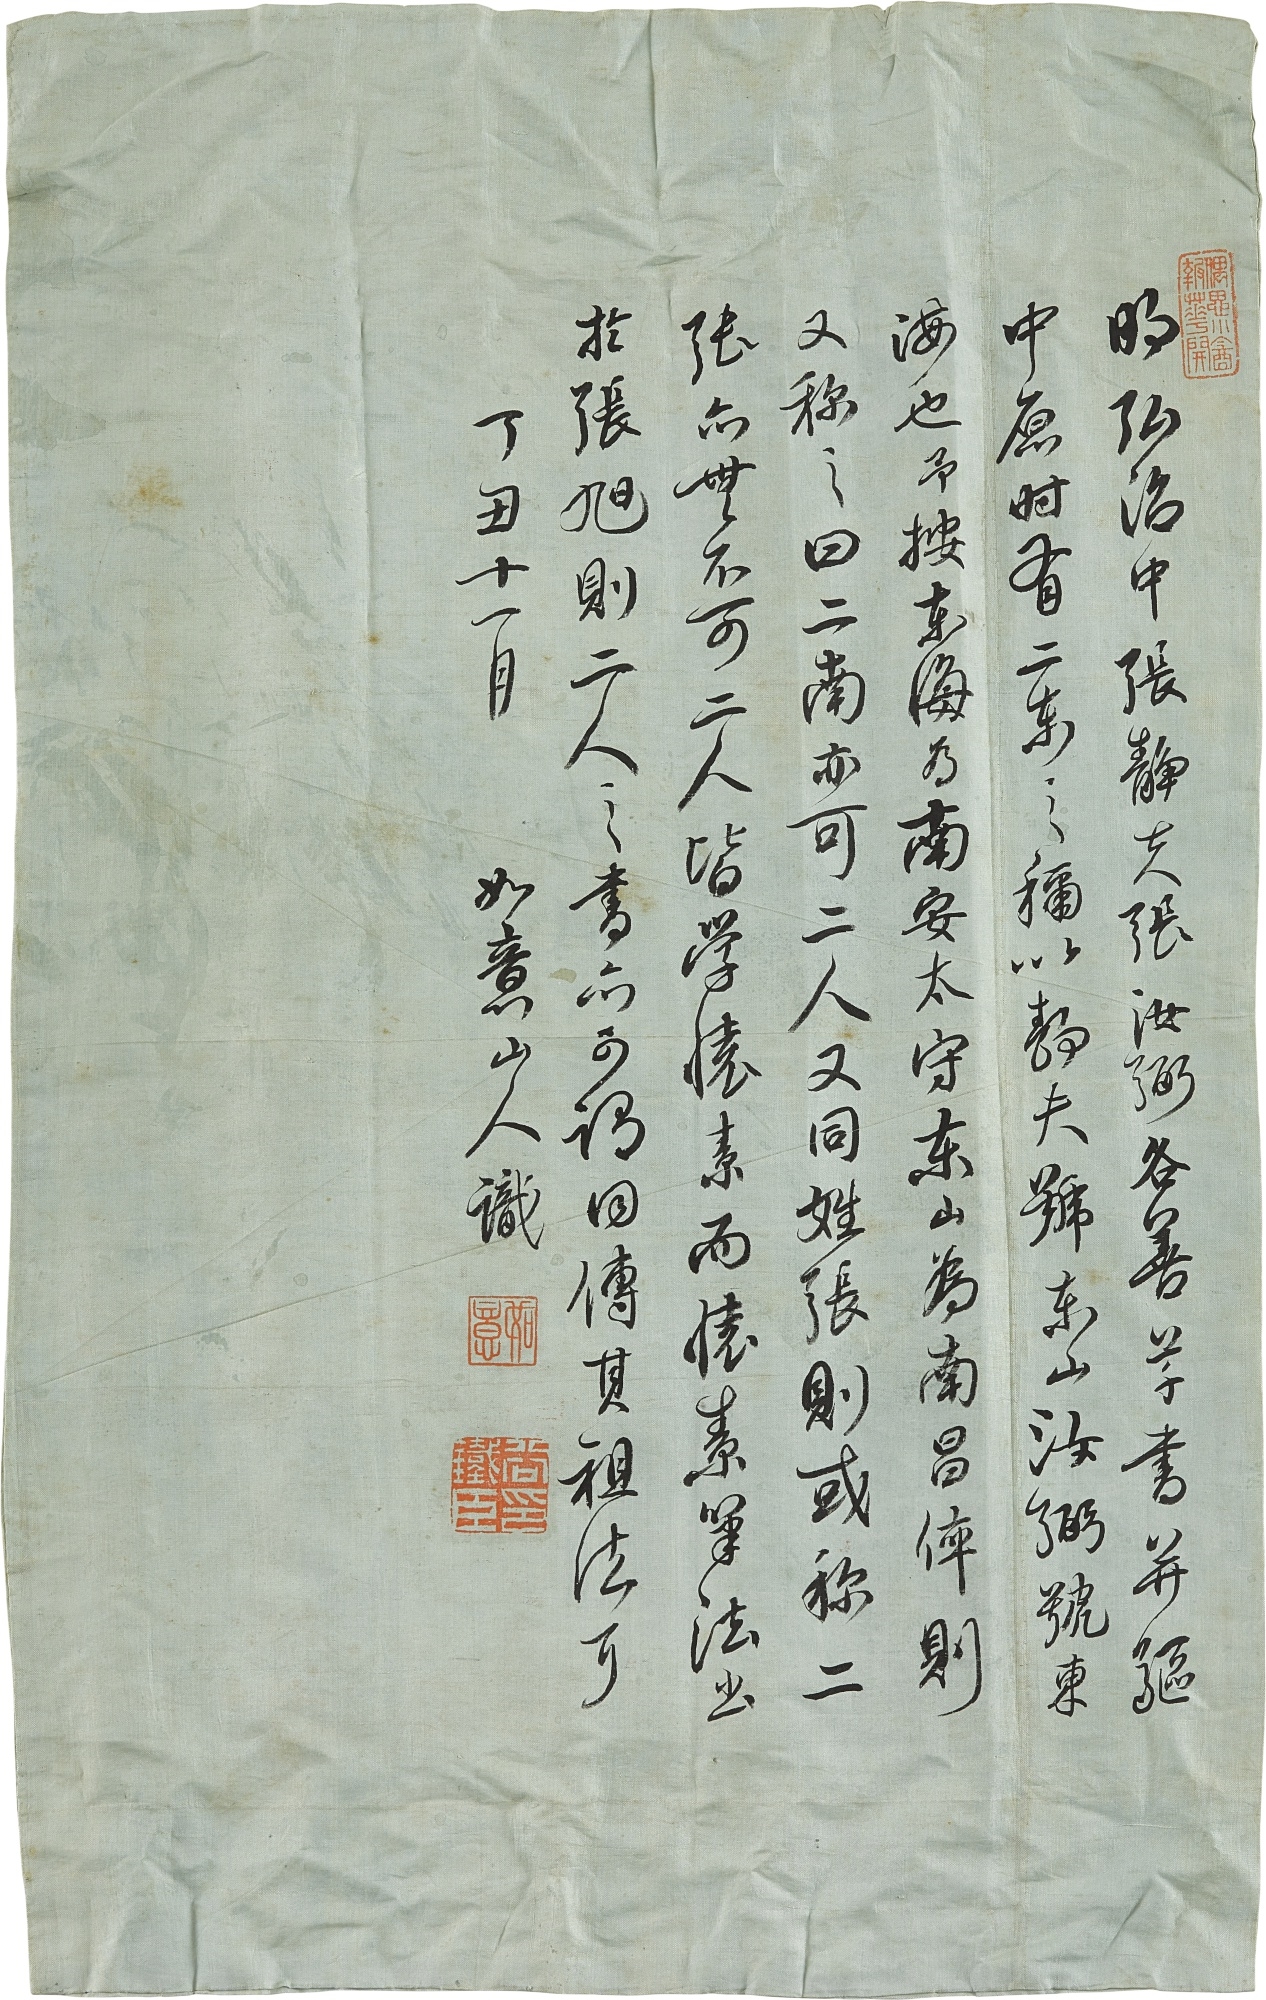 明弘治中張靜夫張汝弼各善草書并驅
中原时有二东之稱以靜夫號东山汝弼號東
海也予按东海为南安太守东山為南昌倅則
又称之曰二南亦可二人又同姓張則或称二
张亦無不可二人皆學懷素而懷素筆法出
於張旭則二人之書亦可謂同傳其祖法可
丁丑十一月 如意山人識
如意